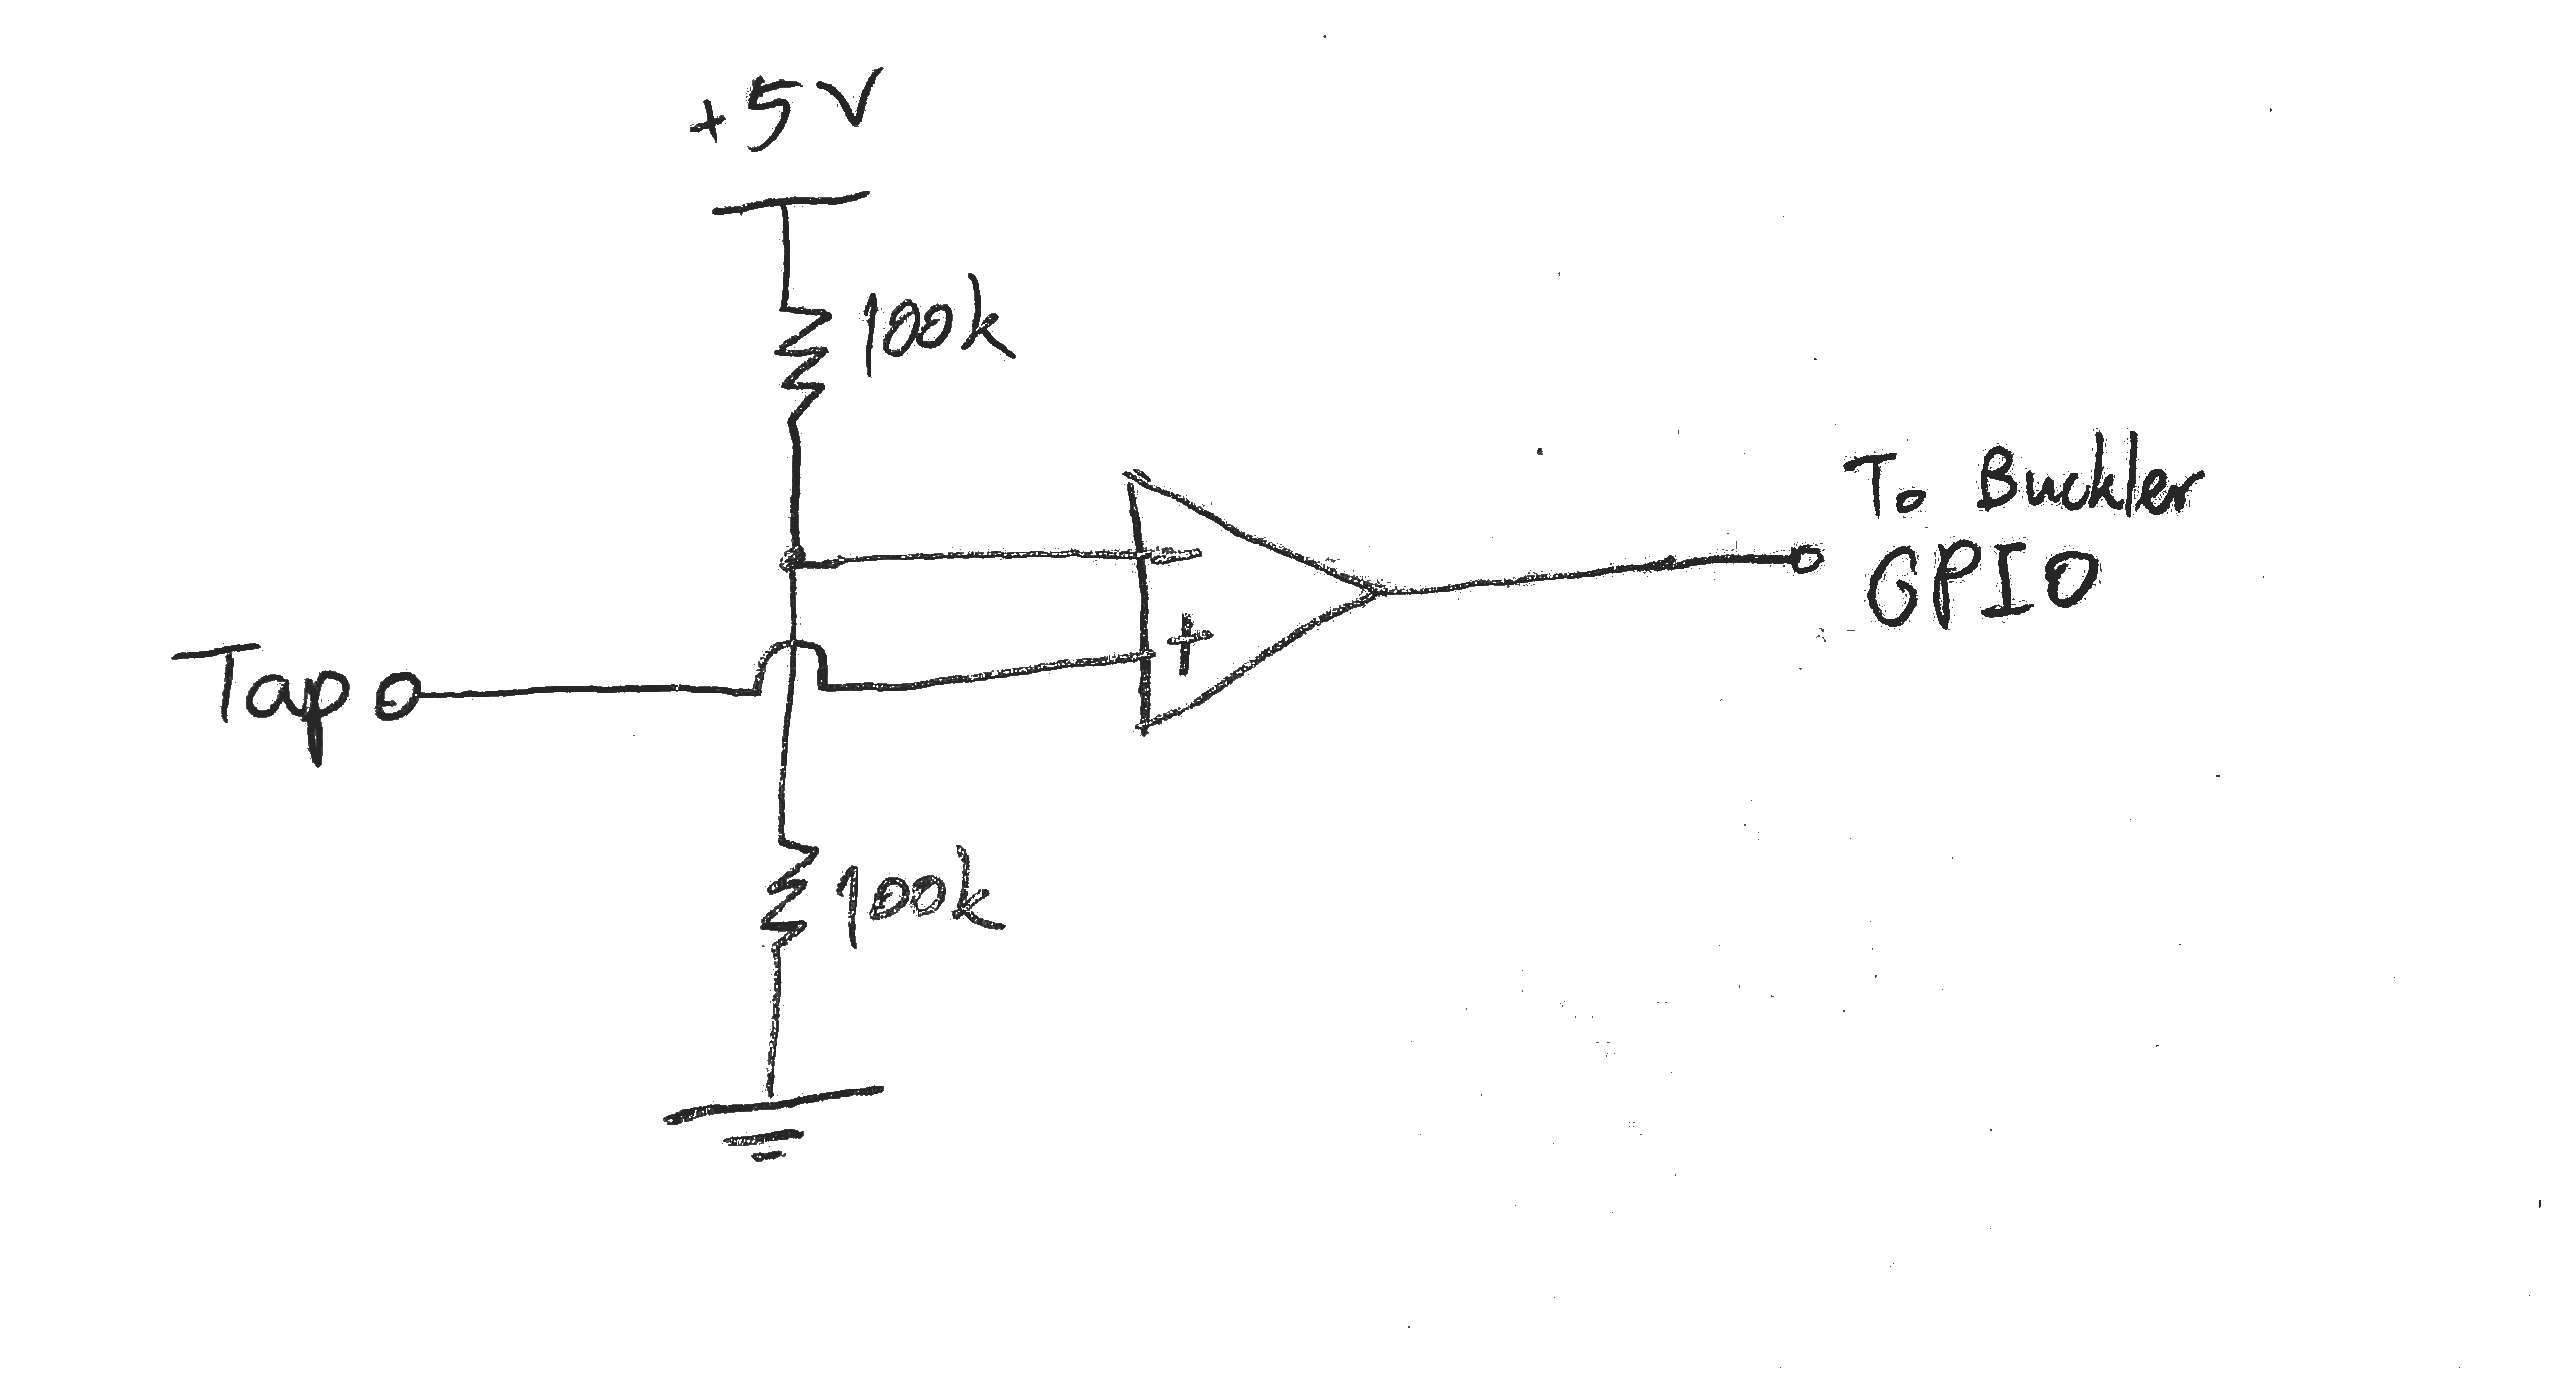 +5V
100k
To Buckler
GPIO
-
+
Tap
100k